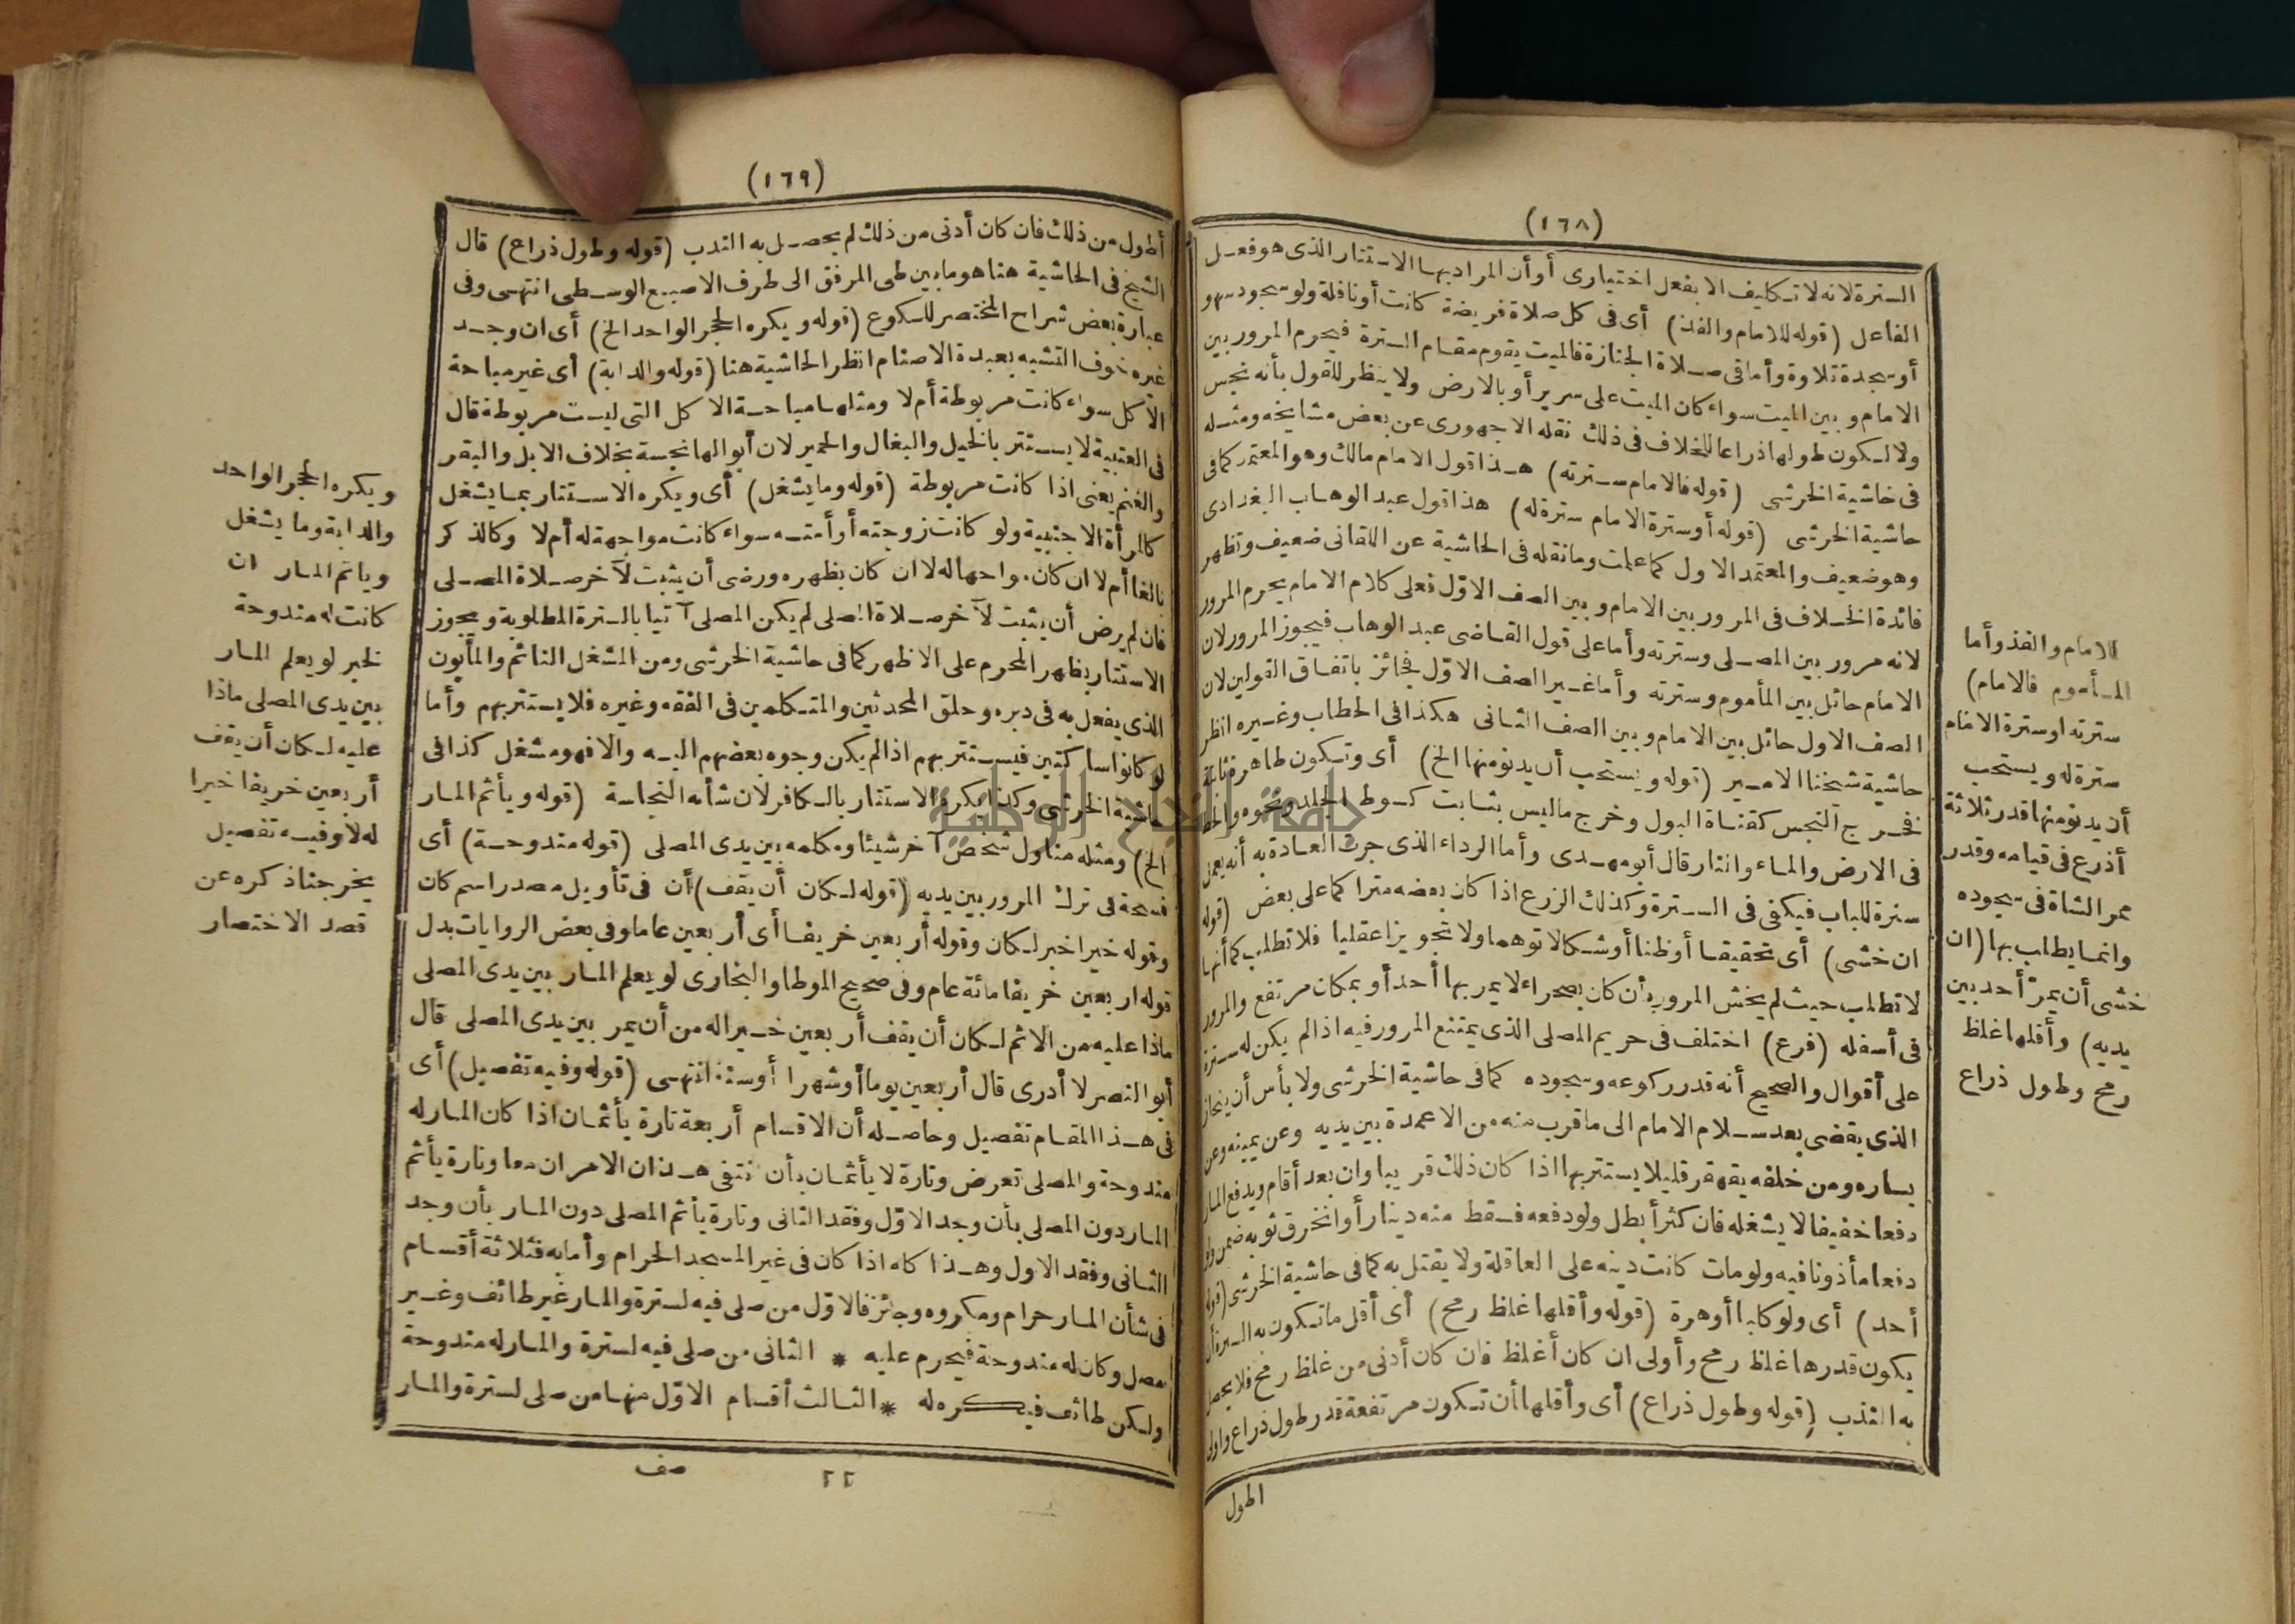 (١٦٨)
السترة لانه لا تكليف الا بفعل اختيارى أو أن المراد بها الاستتار الذى هو فعل
الفاعل (قوله للامام والفذ) أى فى كل صلاة فريضة كانت أو نافلة ولو سجود سهو
أو سجدة تلاوة وأما فى صلاة الجنازة فالميت يقوم مقام السترة فيحرم المرور بين
الامام وبين الميت سواء كان الميت على سرير أو بالارض ولا ينظر للقول بأنه نجس
ولا لكون طولها ذراعا للخلاف فى ذلك نقله الاجهورى عن بعض مشايخه ومثله
فى حاشية الخرشى (قوله فالامام سترته) هذا قول الامام مالك وهو المعتمد كما فى
حاشية الخرشى (قوله أو سترة الامام سترة له) هذا قول عبد الوهاب البغدادى
وهو ضعيف والمعتمد الاول كما علمت وما نقله فى الحاشية عن اللقانى ضعيف وتظهر
فائدة الخلاف فى المرور بين الامام وبين الصف الاوّل فعلى كلام الامام يحرم المرور
لانه مرور بين المصلى وسترته وأما على قول القاضى عبد الوهاب فيجوز المرور لان
الامام حائل بين المأموم وسترته وأما غير الصف الاوّل فجائز باتفاق القولين لان
الصف الاول حائل بين الامام وبين الصف الثانى هكذا فى الحطاب وغيره انظر
حاشية شيخنا الامير (قوله ويستحب أن يدنو منها الخ) أى وتكون طاهرة ثابتة
فخرج النجس كقناة البول وخرج ما ليس بثابت كسوط الجلد ونحوه والخط
فى الارض والماء والنار قال أبو مهدى وأما الرداء الذى جرت العادة به أنه يعمل
سترة للباب فيكفى فى السترة وكذلك الزرع اذا كان بعضه متراكما على بعض (قوله
ان خشى) أى تحقيقا أو ظنا أو شكا لا توهما ولا تجويزا عقليا فلا تطلب كما أنها
لا تطلب حيث لم يخش المرور بأن كان بصحراء لا يمر بها أحد أو بمكان مرتفع والمرور
فى أسفله (فرع) اختلف فى حريم المصلى الذى يمتنع المرور فيه اذا لم يكن له سترة
على أقوال والصحيح أنه قدر ركوعه وسجوده كما فى حاشية الخرشى ولا بأس أن ينحاز
الذى يقضى بعد سلام الامام الى ما قرب منه من الاعمدة بين يديه وعن يمينه وعن
يساره ومن خلفه يقهقر قليلا يستتر بها اذا كان ذلك قريبا وان بعد أقام ويدفع المار
دفعا خفيفا لا يشغله فان كثر أبطل ولو دفعه فسقط منه دينار أو انخرق ثوبه ضمن ولو
دفعا مأذونا فيه ولو مات كانت ديته على العاقلة ولا يقتل به كما فى حاشية الخرشى (قوله
أحد) أى ولو كلبا أو هرة (قوله وأقلها غلظ رمح) أى أقل ما تكون به السترة أن
يكون قدرها غلظ رمح وأولى ان كان أغلظ فان كان أدنى من غلظ رمح فلا يحصل
به الندب (قوله وطول ذراع) أى وأقلها أن تكون مرتفعة قدر طول ذراع وأولى
اطول
للامام والفذ وأما
المأموم فالامام)
سترته او سترة الامام
سترة له ويستحب
أن يدنو منها قدر ثلاثة
أذرع فى قيامه وقدر
ممر الشاة فى سجوده
وانما يطلب بها (ان
خشى أن يمرّ أحد بين
يديه) وأقلها غلظ
رمح وطول ذراع
(١٦٩)
أطول من ذلك فان كان أدنى من ذلك لم يحصل به الندب (قوله وطول ذراع) قال
الشيخ فى الحاشية هنا هو ما بين طى المرفق الى طرف الاصبع الوسطى انتهى وفى
عبارة بعض شراح المختصر للكوع (قوله ويكره الحجر الواحد الخ) أى ان وجد
غيره خوف التشبه بعبدة الاصنام انظر الحاشية هنا (قوله والدابة) أى غير مباحة
الأكل سواء كانت مربوطة أم لا ومثلها مباحة الاكل التى ليست مربوطة قال
فى العتبية لا يستتر بالخيل والبغال والحمير لان أبوالها نجسة بخلاف الابل والبقر
والغنم يعنى اذا كانت مربوطة (قوله وما يشغل) أى ويكره الاستتار بما يشغل
كالمرأة الاجنبية ولو كانت زوجته أو أمته سواء كانت مواجهة له أم لا وكالذكر
بالغا أم لا ان كان مواجها له لا ان كان بظهره ورضى أن يثبت لآخر صلاة المصلى
فان لم يرض أن يثبت لآخر صلاة المصلى لم يكن المصلى آتيا بالسترة المطلوبة ويجوز
الاستتار بظهر المحرم على الاظهر كما فى حاشية الخرشى ومن المشغل النائم والمأبون
الذى يفعل به فى دبره وحلق المحدثين والمتكلمين فى الفقه وغيره فلا يستتر بهم وأما
لو كانوا ساكتين فيستتر بهم اذا لم يكن وجوه بعضهم اليه والا فهو مشغل كذا فى
حاشية الخرشى وكذا يكره الاستتار بالكافر لان شأنه النجاسة (قوله ويأثم المار
الخ) ومثله مناول شخص آخر شيئا ومكلمه بين يدى المصلى (قوله مندوحة) أى
فسحة فى ترك المرور بين يديه (قوله لكان أن يقف) أن فى تأويل مصدر اسم كان
وقوله خيرا خبر لكان وقوله أربعين خريفا أى أربعين عاما وفى بعض الروايات بدل
قوله اربعين خريفا مائة عام وفى صحيح الموطا والبخارى لو يعلم المار بين يدى المصلى
ماذا عليه من الاثم لكان أن يقف أربعين خيرا له من أن يمر بين يدى المصلى قال
أبو النصر لا أدرى قال أربعين يوما أو شهرا أو سنة انتهى (قوله وفيه تفصيل) أى
فى هذا المقام تفصيل وحاصله أن الاقسام أربعة تارة يأثمان اذا كان المار له
مندوحة والمصلى تعرض وتارة لا يأثمان بأن انتفى هذان الامران معا وتارة يأثم
المار دون المصلى بأن وجد الاوّل وفقد الثانى وتارة يأثم المصلى دون المار بأن وجد
الثانى وفقد الاول وهذا كله اذا كان فى غير المسجد الحرام وأما به فثلاثة أقسام
فى شأن المار حرام ومكروه وجائز فالاوّل من صلى فيه لسترة والمار غير طائف وغير
مصل وكان له مندوحة فيحرم عليه * الثانى من صلى فيه لسترة والمار له مندوحة
ولكن طائف فيكره له * الثالث أقسام الاوّل منها من صلى لسترة والمار
٢٢ صف
ويكره الحجر الواحد
والدابة وما يشغل
وياثم المار ان
كانت له مندوحة
لخبر لو يعلم المار
بين يدى المصلى ماذا
عليه لكان أن يقف
أربعين خريفا خيرا
له لا وفيه تفصيل
يخرجنا ذكره عن
قصد الاختصار
جامعة النجاح الوطنية